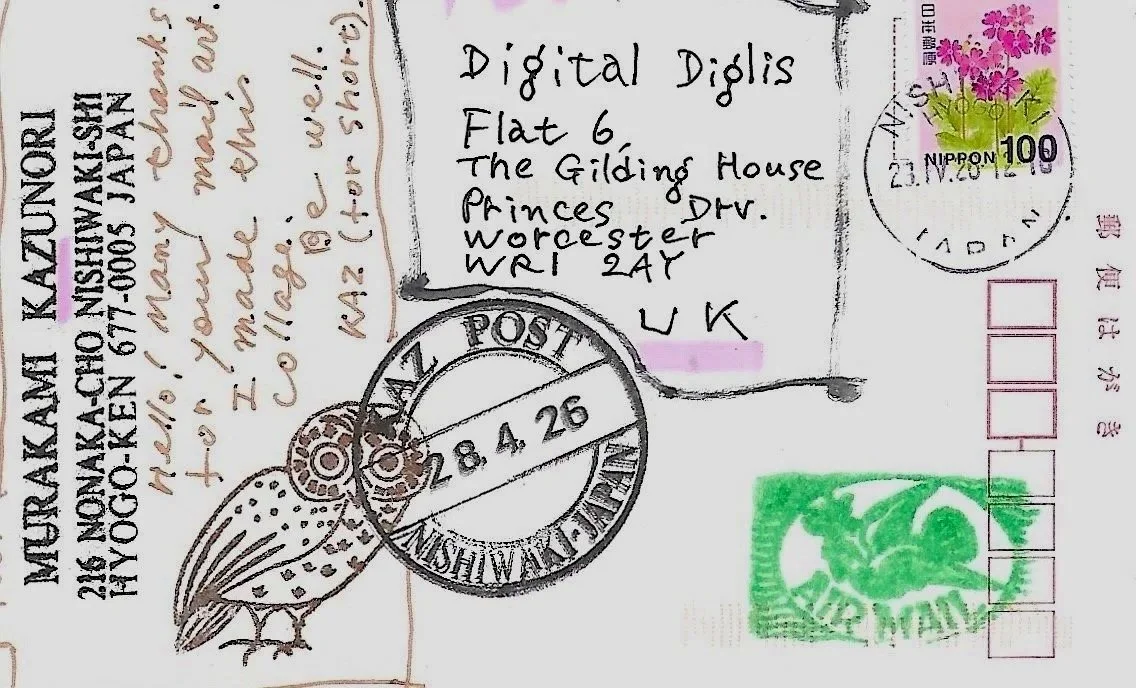 MURAKAMI KAZUNORI
216 NONAKA-CHO NISHIWAKI-SHI
HYOGO-KEN 677-0005 JAPAN
Hello! Many thanks
for your mail art.
I made this
collage.
Be well.
KAZ (for short).
Digital Diglis
Flat 6,
The Gilding House
Princes Drv.
Worcester
WR1 2AY
UK
日本郵便
NIPPON 100
NISHIWAKI
HYOGO
JAPAN
郵便はがき
KAZ POST
28.4.26
NISHIWAKI-JAPAN
AIR MAIL